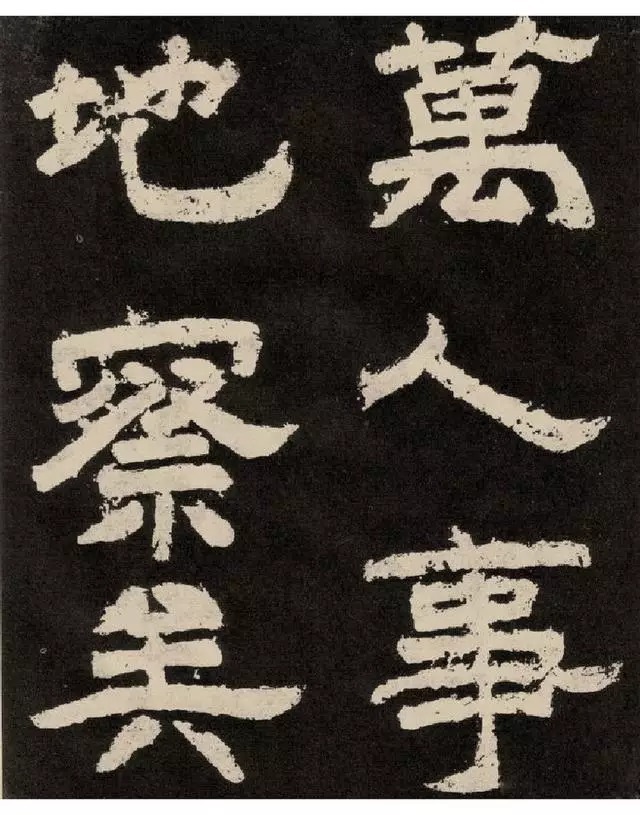 萬人事
地察矣